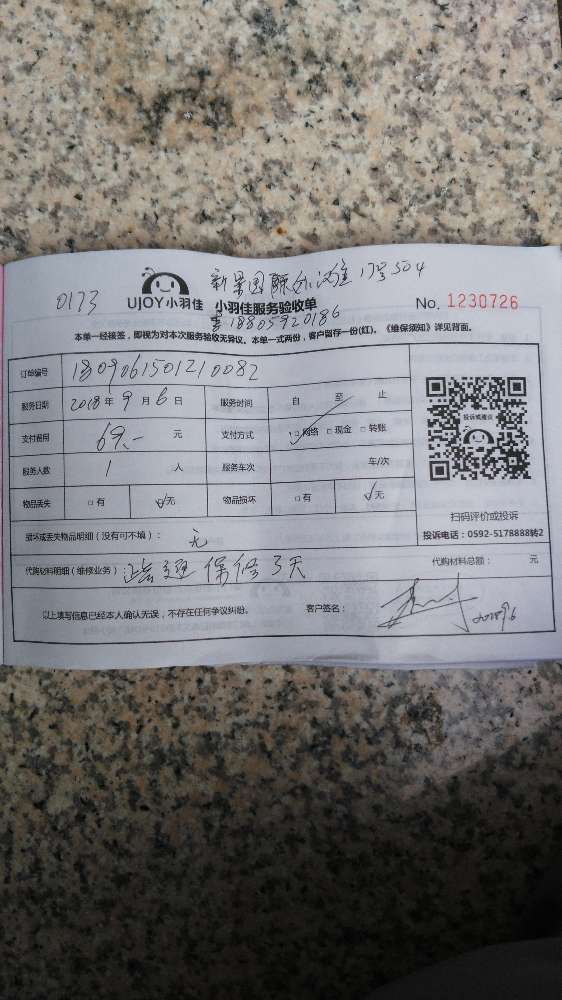 新景国际外滩17号504
0173
UJOY小羽佳 小羽佳服务验收单 No. 1230726
18805920186
本单一经接签,即视为对本次服务验收无异议。本单一式两份,客户留存一份(红)。《维保须知》详见背面。
订单编号 1809061501210082
服务日期 2018年9月6日 服务时间 自 至 止
支付费用 69.- 元 支付方式 ☑网络 □现金 □转账
服务人数 1 人 服务车次 车/次
物品丢失 □有 ☑无 物品损坏 □有 ☑无
投诉或建议
扫码评价或投诉
投诉电话:0592-5178888转2
损坏或丢失物品明细(没有可不填): 无
代购材料明细(维修业务): 保修3天 代购材料总额: 元
以上填写信息已经本人确认无误,不存在任何争议纠纷。 客户签名: 2018.9.6